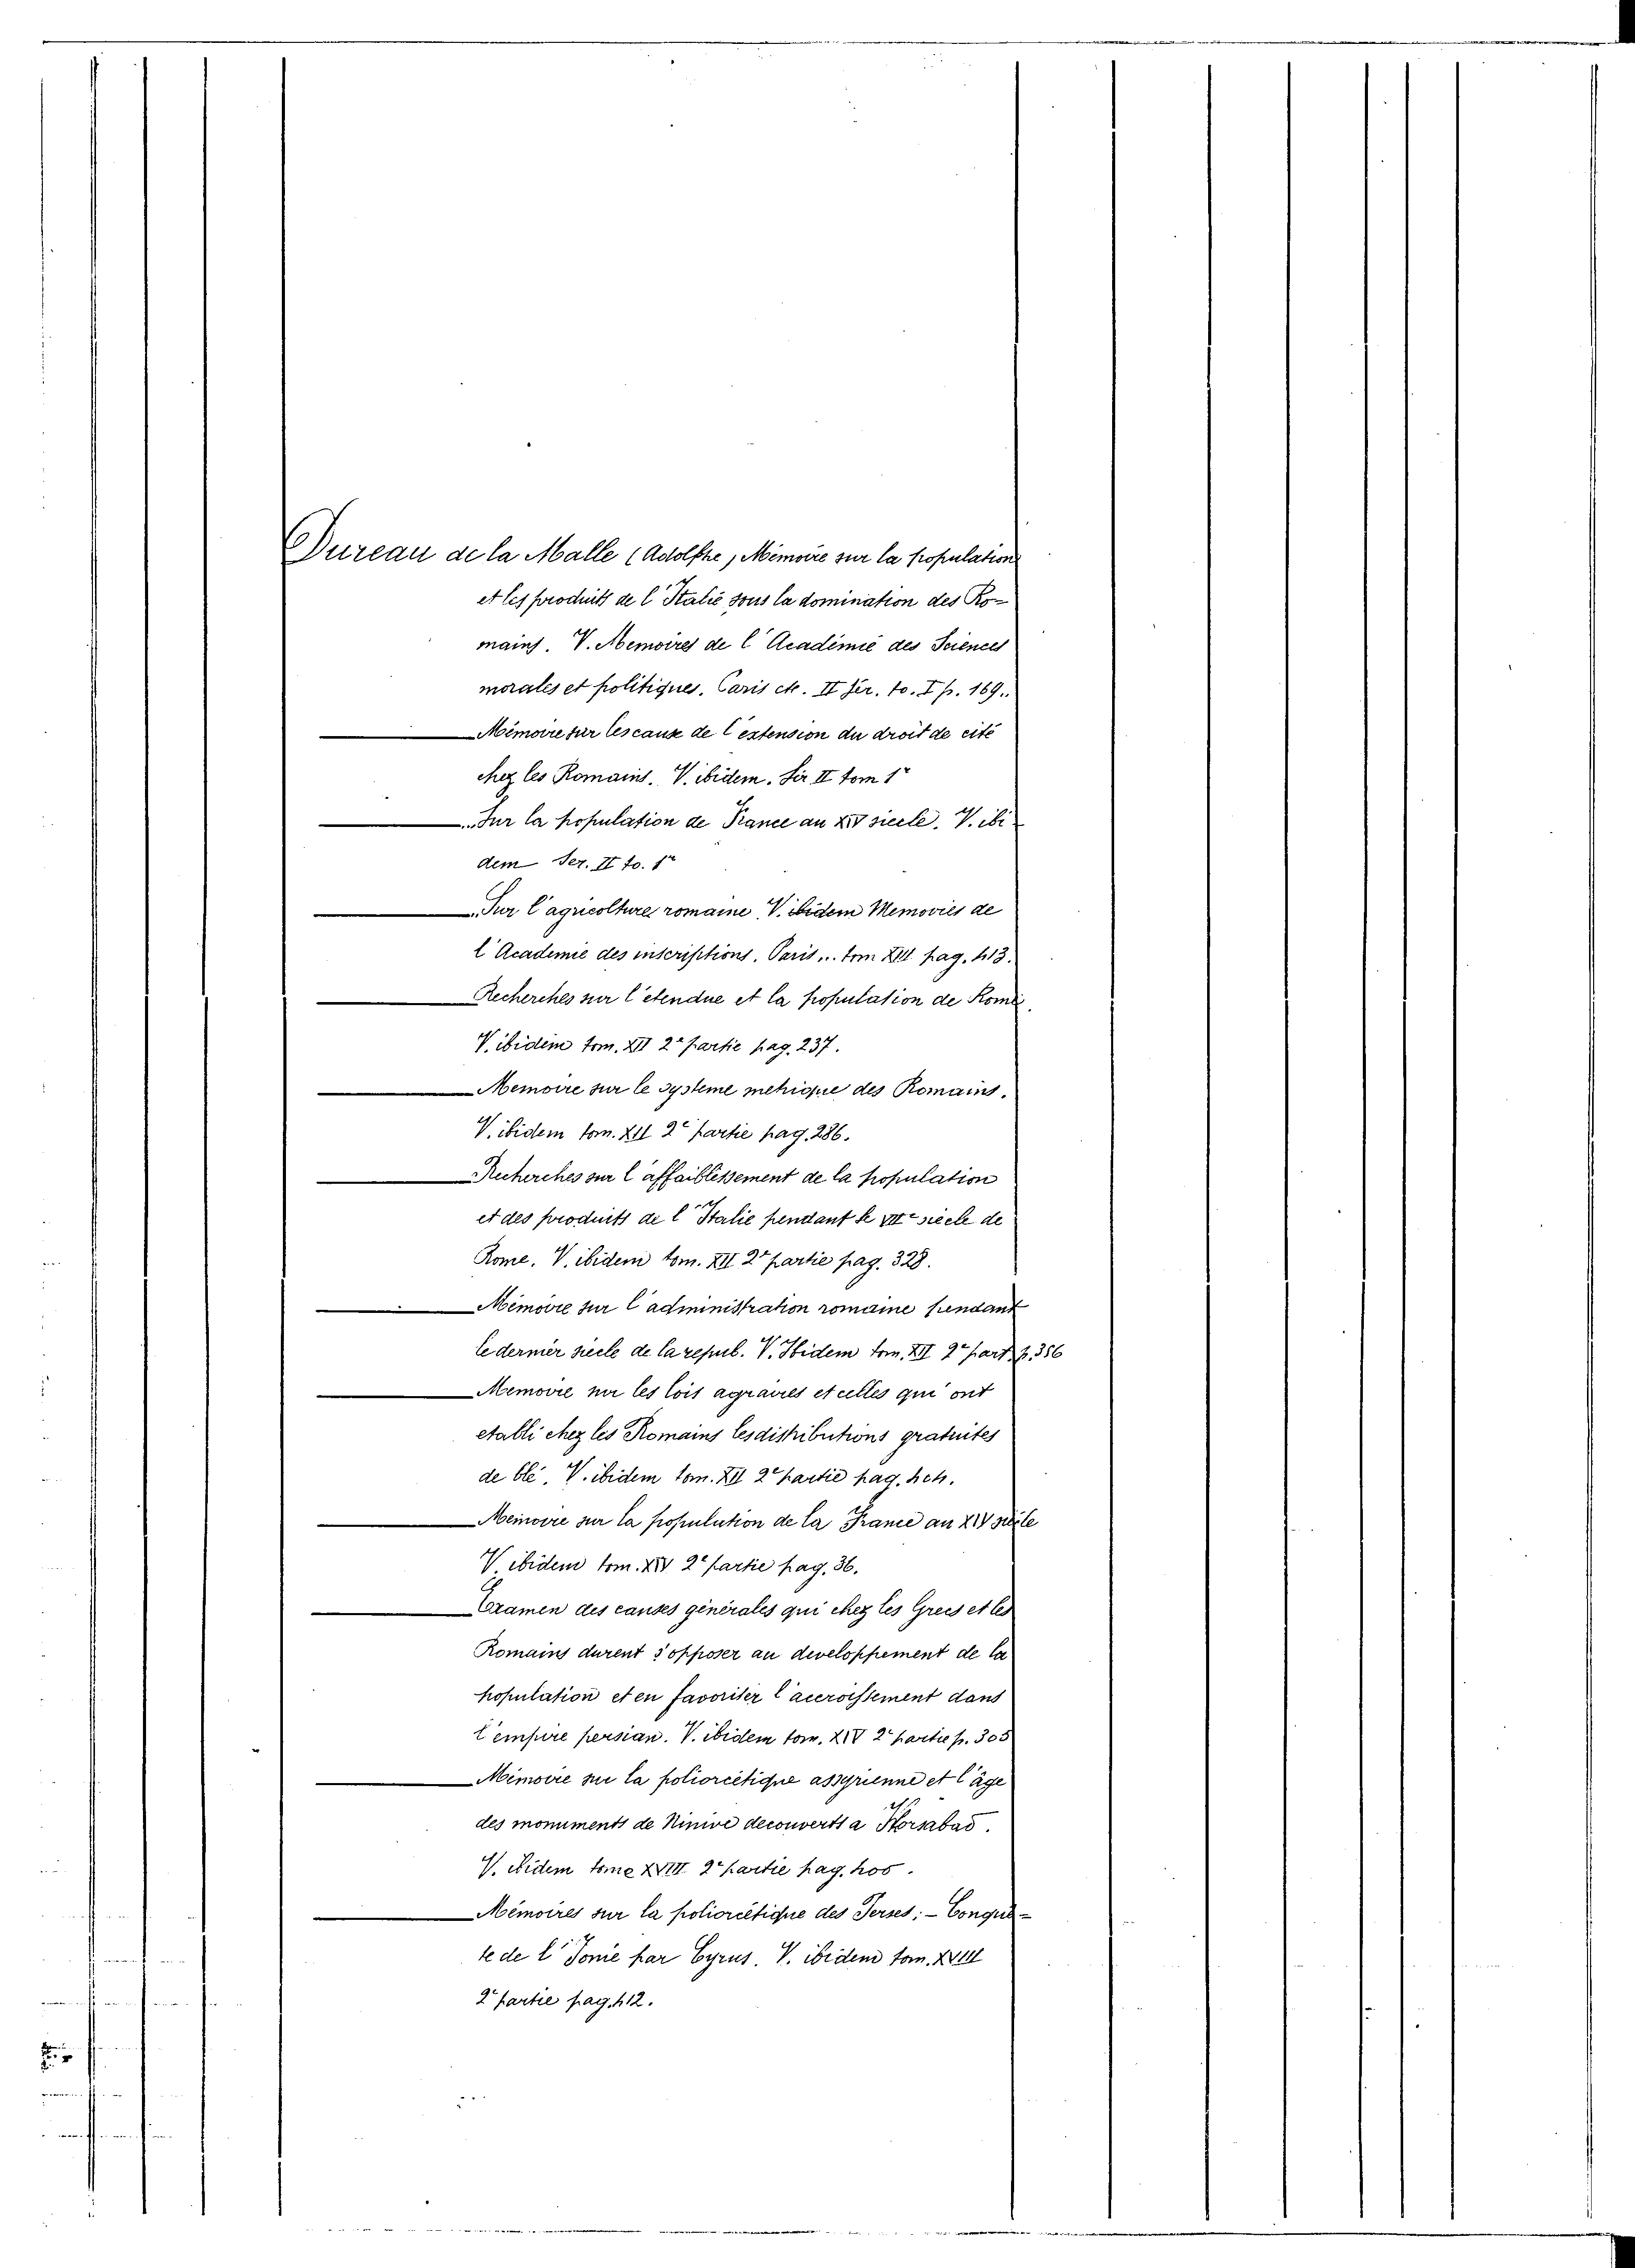 Dureau de la Malle (Adolphe, Mémoire sur la population
et les produits de l'Italie sous la domination des Ro-
mains. V. Memoires de l'Académie des Sciences
morales et politiques. Paris etc. II Ser. to. I p. 169.
Mémoire sur les caux de l'extension du droit de cité
chez les Romains. V. ibidem. Ser. II tom 1r
Sur la population de France au XIV siecle. V. ibi
dem Ser. II to. 1r
Sur l'agricolture romaine. V. ibidem Memovies de
l'Academie des inscriptions. Paris... tom XIII pag. 413.
Recherches sur l'etendue et la population de Rome.
V. ibidem tom. XII 2e partie pag. 237.
Memoire sur le systeme metrique des Romains.
V. ibidem tom. XII 2e partie pag. 286.
Recherches sur l'affaiblissement de la population
et des produits de l'Italie pendant le VIIe siecle de
Rome. V. ibidem tom. XII 2e partie pag. 328.
Mémoire sur l'administration romaine pendant
le dernier siecle de la repub. V. Ibidem tom. XII 2e part. p. 356
Memoire sur les lois agraires et celles qui ont
etabli chez les Romains les distributions gratuites
de blé. V. ibidem tom. XII 2e partie pag.
Memoire sur la population de la France au XIV siecle
V. ibidem tom. XIV 2e partie pag. 36.
Examen des causes générales qui chez les Grecs et les
Romains durent s'opposer au developpement de la
population et en favoriser l'accroissement dans
l'empire persian. V. ibidem tom. XIV 2e partie p. 305
Mémoire sur la poliorcétique assyrienne et l'âge
des monuments de Ninive decouverts a Horsabad.
V. ibidem tome XVIII 2e partie pag. 400.
Mémoires sur la poliorcétique des Perses; - Conquê-
te de l'Ionie par Cyrus. V. ibidem tom. XVIII
2e partie pag. 412.